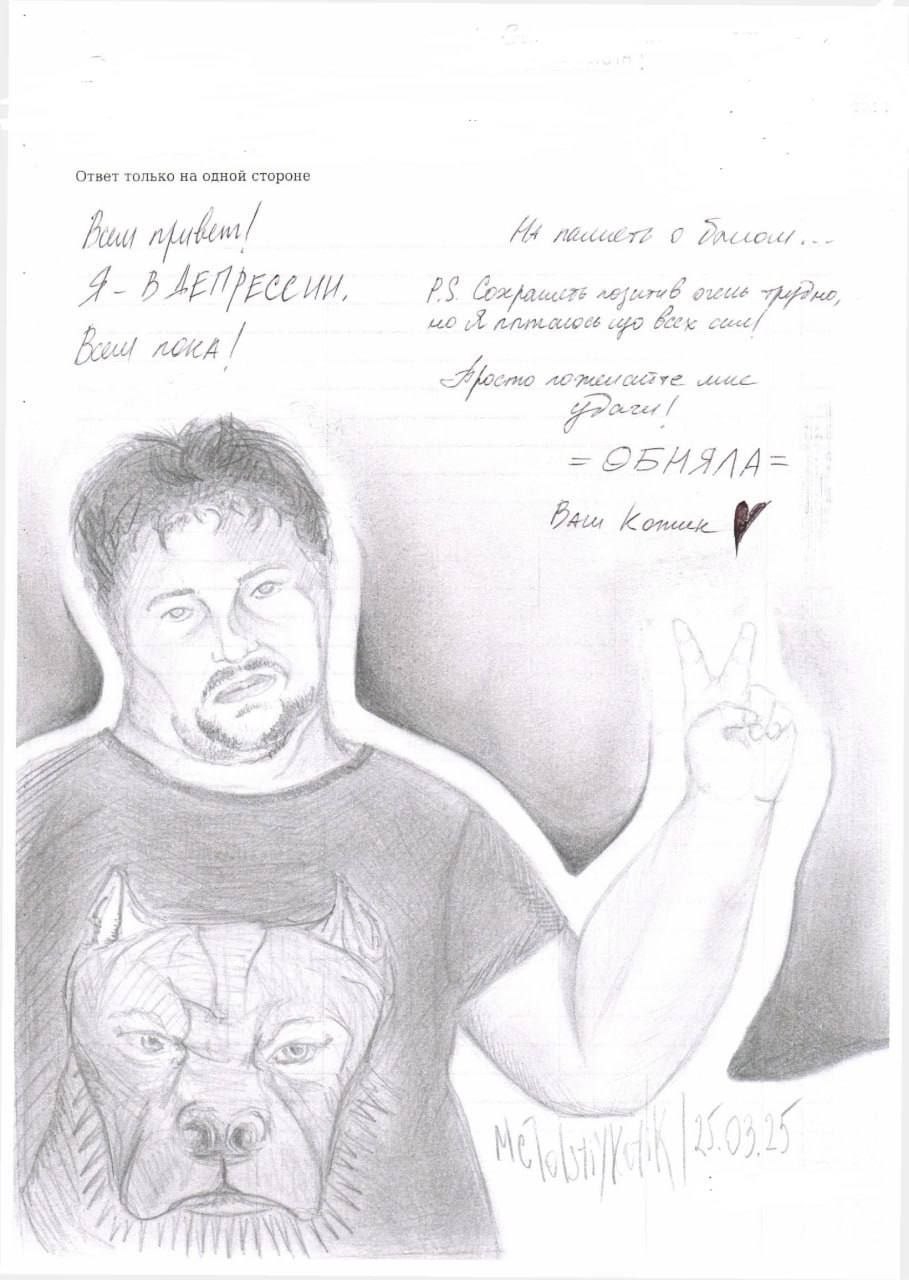 Ответ только на одной стороне
Всем привет!
Я - В ДЕПРЕССИИ.
Всем пока!
На память о былом...
P.S. Сохранять позитив очень трудно,
но Я пытаюсь изо всех сил!
Просто пожелайте мне
удачи!
=ОБНЯЛА=
Ваш Котик
MeTolstiyKotik | 25.03.25